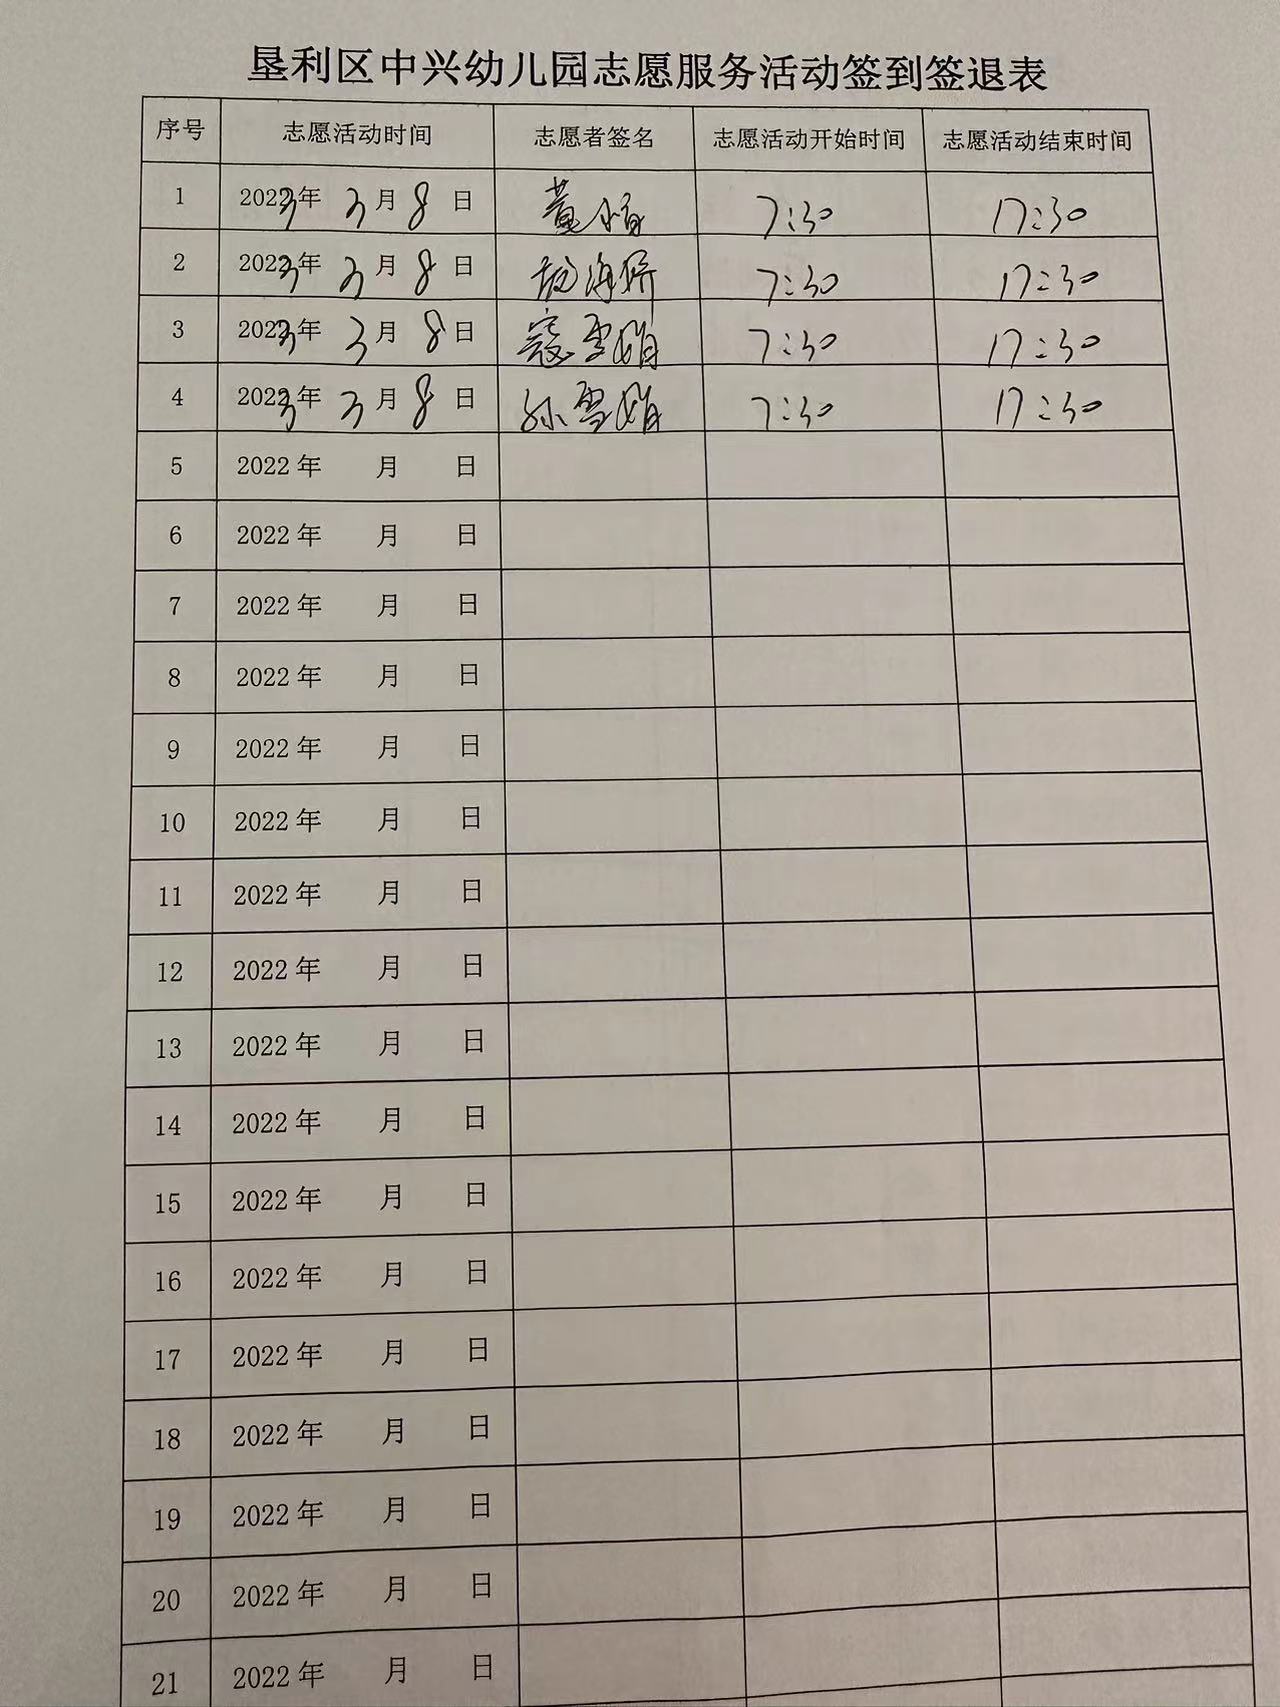 垦利区中兴幼儿园志愿服务活动签到签退表
序号 志愿活动时间 志愿者签名 志愿活动开始时间 志愿活动结束时间
1 2023年 3月 8日 黄 7:30 17:30
2 2023年 3月 8日 海娇 7:30 17:30
3 2023年 3月 8日 寇雪娟 7:30 17:30
4 2023年 3月 8日 孙雪娟 7:30 17:30
5 2022年 月 日
6 2022年 月 日
7 2022年 月 日
8 2022年 月 日
9 2022年 月 日
10 2022年 月 日
11 2022年 月 日
12 2022年 月 日
13 2022年 月 日
14 2022年 月 日
15 2022年 月 日
16 2022年 月 日
17 2022年 月 日
18 2022年 月 日
19 2022年 月 日
20 2022年 月 日
21 2022年 月 日